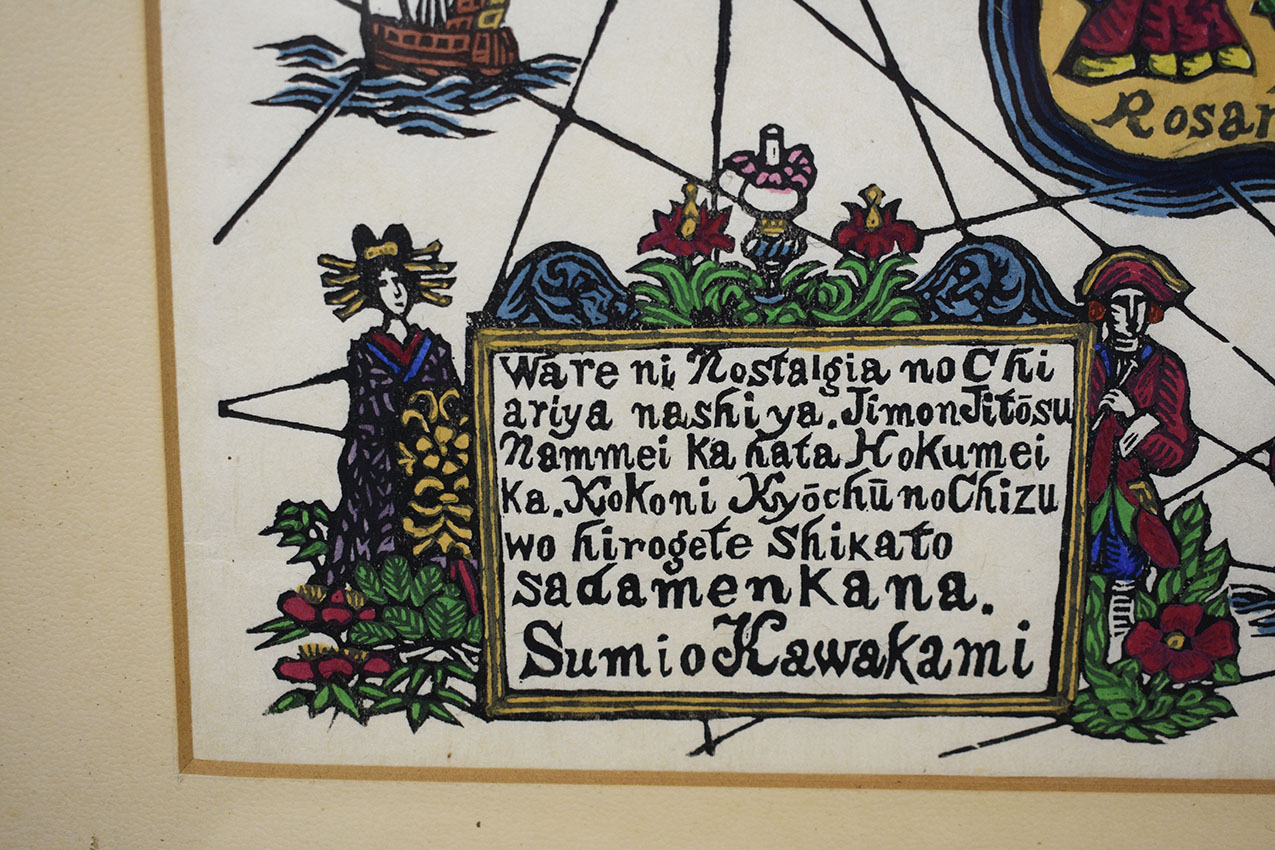 Rosar
Ware ni Nostalgia no Chi
ariya nashiya. Jimon Jitōsu
Nammei ka hata Hokumei
ka. Kokoni Kyōchū no Chizu
wo hirogete Shikato
sadamenkana.
Sumio Kawakami